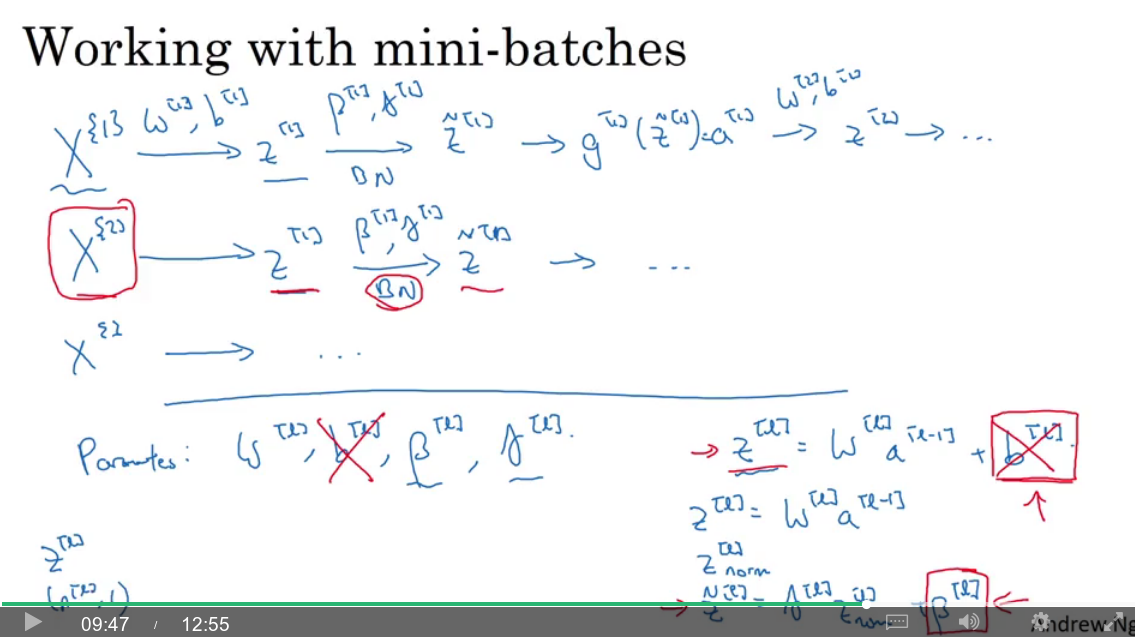 Working with mini-batches
X^{1} W^[1], b^[1] → z^[1] β^[1], γ^[1] BN → z̃^[1] → g^[1](z̃^[1]) = a^[1] W^[2], b^[2] → z^[2] → ...
X^{2} → z^[1] β^[1], γ^[1] BN → z̃^[1] → ...
X^{3} → ...
Parameters: W^[l], b^[l], β^[l], γ^[l].
→ z^[l] = W^[l] a^[l-1] + b^[l]
z^[l] = W^[l] a^[l-1]
z^[l]
z^[l] norm
(n^[l], 1)
→ z̃^[l] = γ^[l] z^[l] norm + β^[l] ←
09:47 / 12:55
Andrew Ng